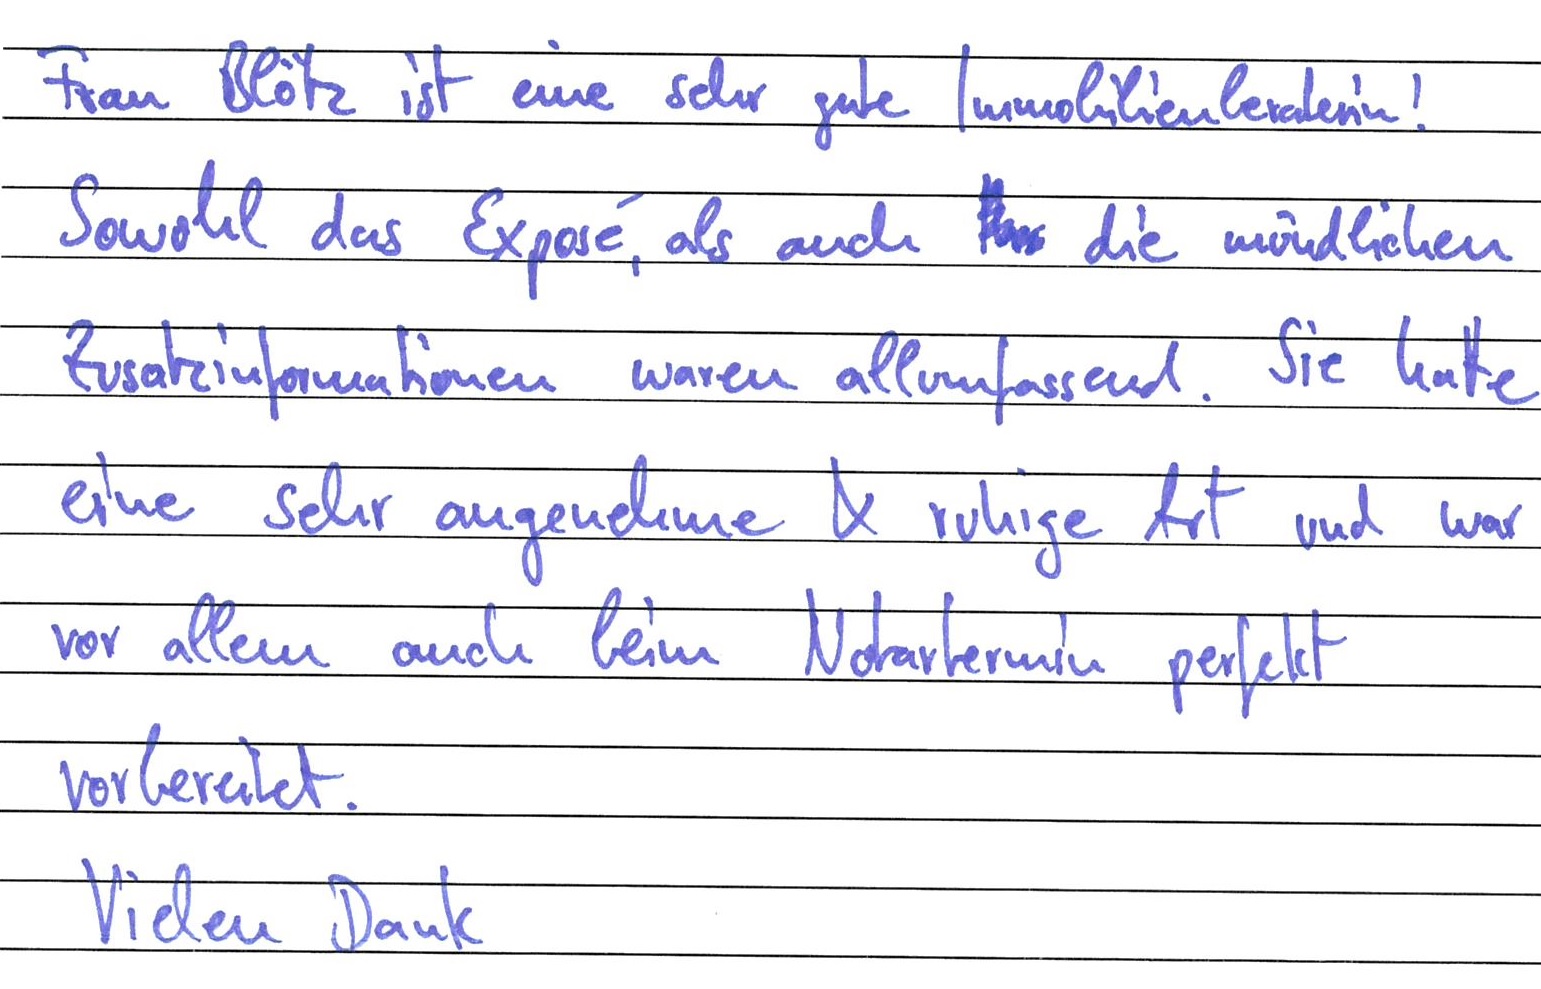 Frau Blötz ist eine sehr gute Immobilienberaterin!
Sowohl das Exposé, als auch die mündlichen
Zusatzinformationen waren allumfassend. Sie hatte
eine sehr angenehme & ruhige Art und war
vor allem auch beim Notartermin perfekt
vorbereitet.
Vielen Dank